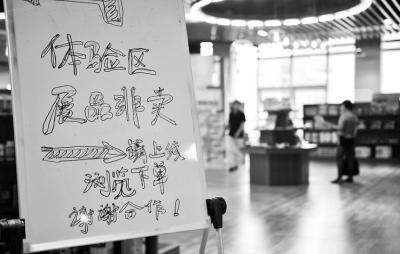 体验区
展品非卖
请上线
浏览下单
谢谢合作！